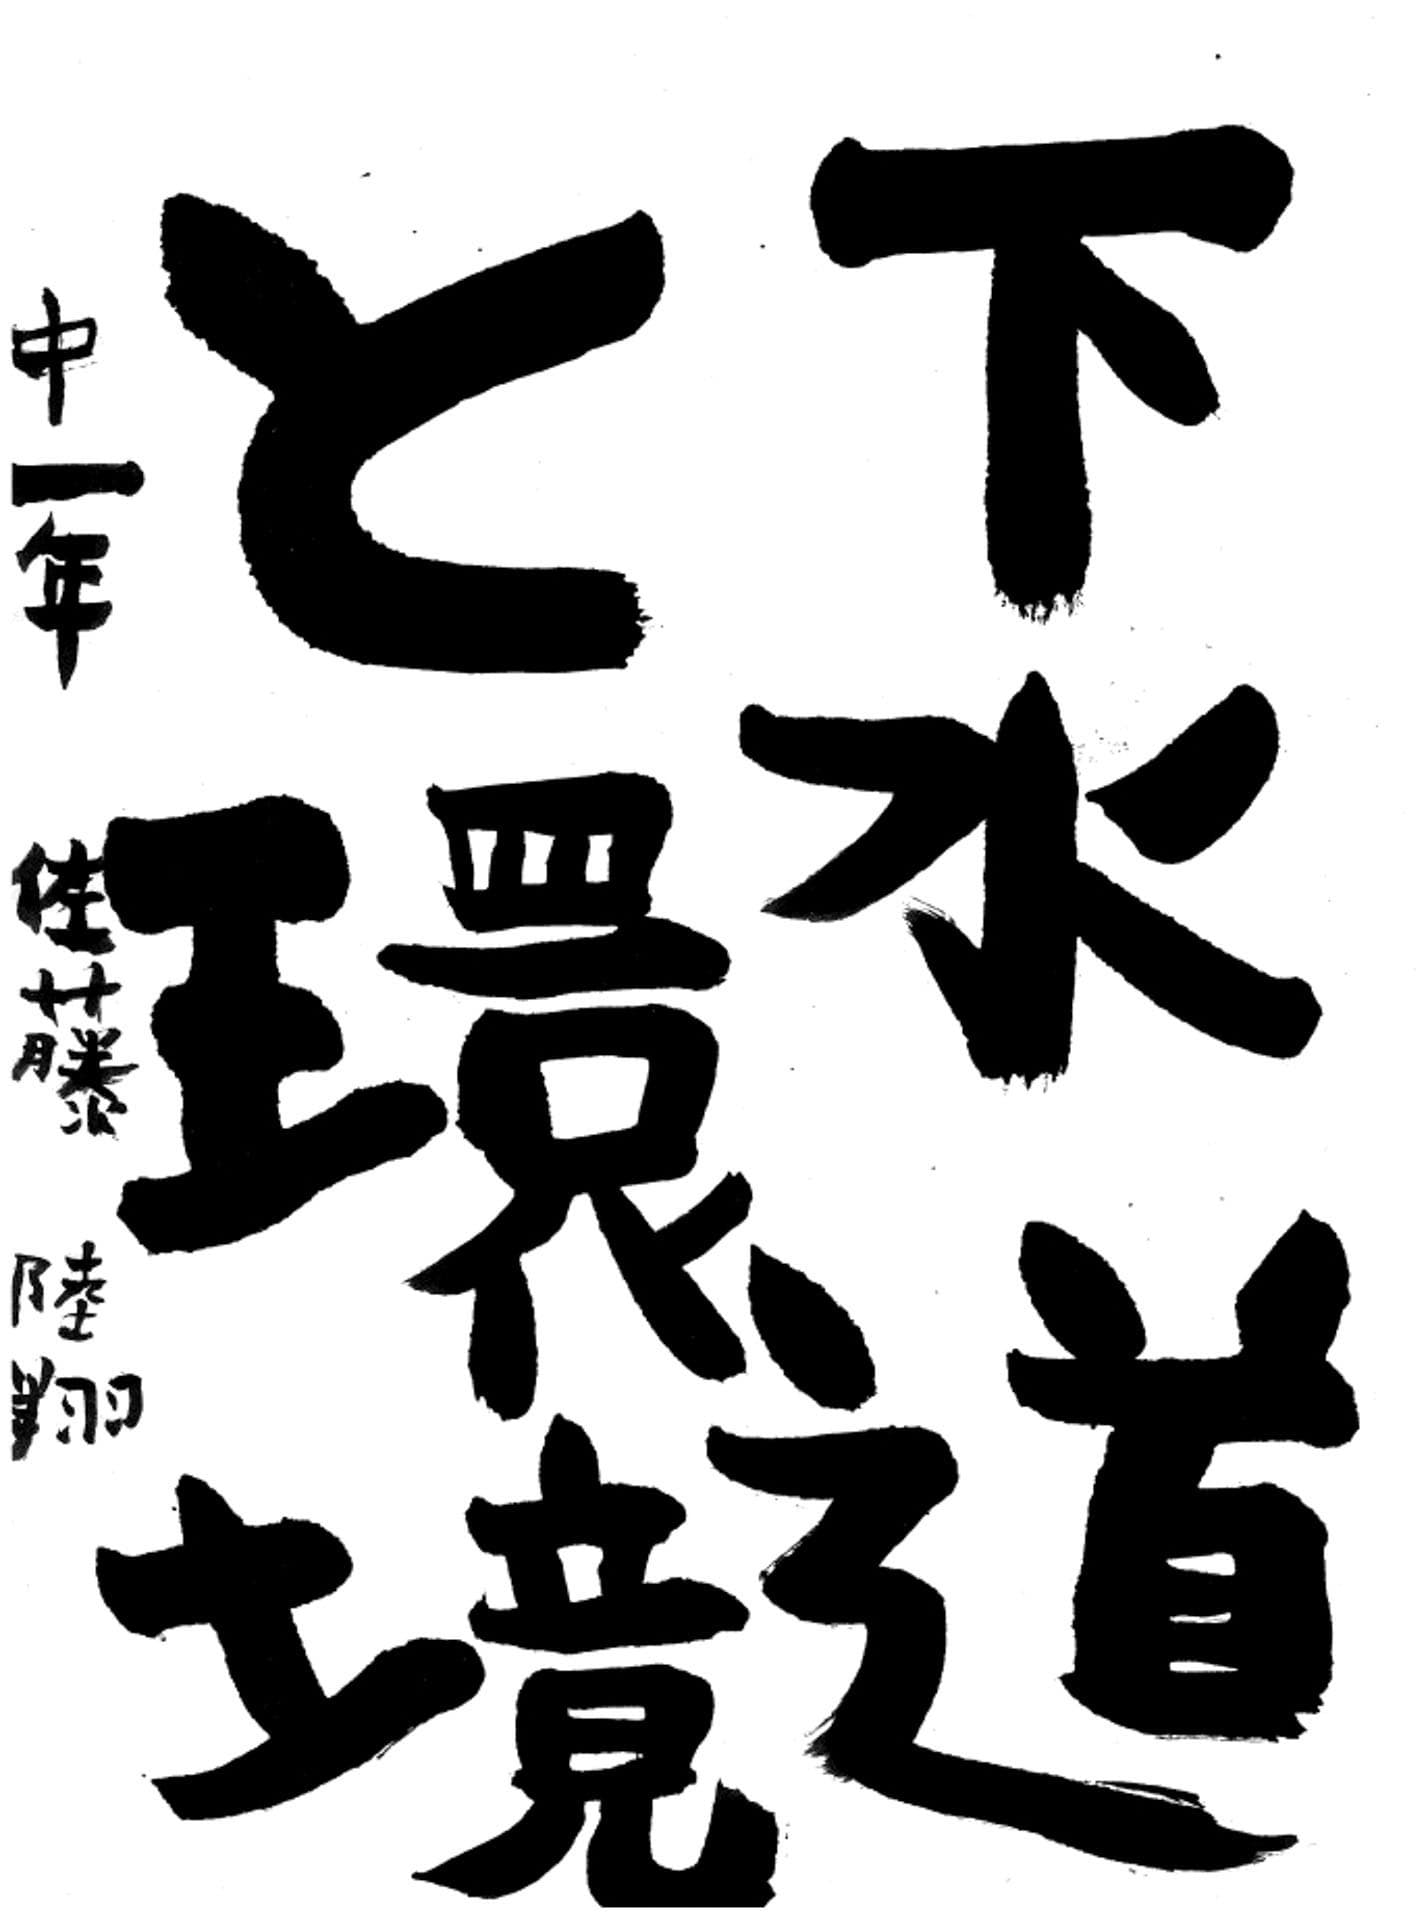 下水道
と環境
中一年 佐藤 陸翔